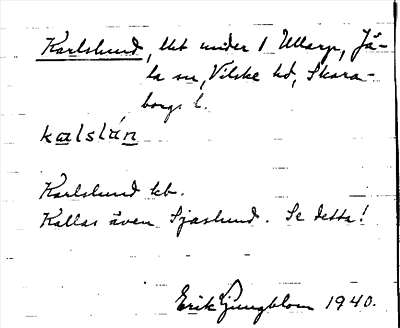 Karlslund, lht under 1 Ullarp, Jä-
la sn, Vilske hd, Skara-
borgs l.
kalslán
Karlslund kb.
Kallas även Sjaslund. Se detta!
Erik Ljungblom 1940.